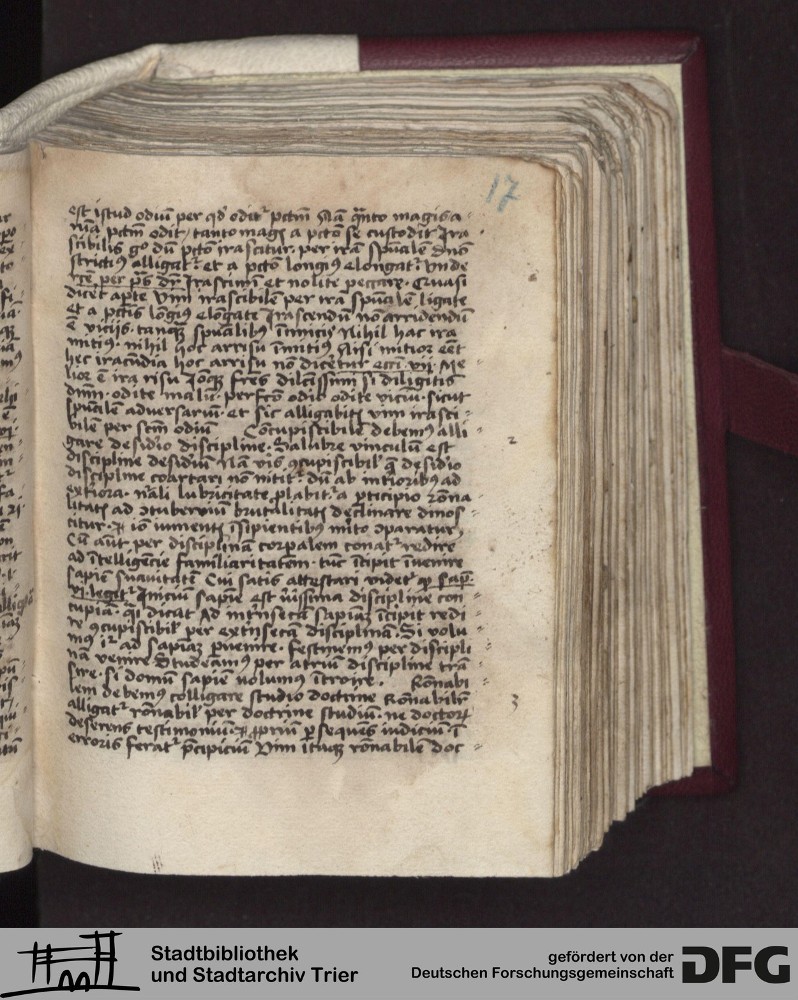 17
est istud odiū per qd odit pctm Nā quāto magis a
nīa pctm odit / tanto magis a pcto se custodit Ira
scibilis go dū pcto irascitur · per irā spūalē
strictiꝰ alligat · et a pcto longiꝰ elongat · Unde
per Irascimī et nolite peccare · Quasi
dicet apte Vim irascibilē per irā spūalē ligate
et a pctis lōgiꝰ elōgate Irascendū nō arridendū
ē vicijs · tanqꝫ spūalibꝰ inimicis Nihil hac ira
mitiꝰ · nihil hoc arrisu īmitiꝰ Nisi mitior eēt
hec iracūdia hoc arrisu nō dicetur ecci · vij · Me
lior ē ira risu Ioqꝫ frēs dilcissimi si diligitis
dnm · odite malū · perfcō odio odite viciū · sicut
spūalē adversariū · et sic alligabitis vim irasci
bilē per scm odiū Cōcupiscibilē debemꝰ alli
gare desidio discipline · Salubre vinculū est
discipline desidiū Nā vis ꝯcupiscibilꝰ q̄ desidio
discipline coartari nō nitit · dū ab intioribꝰ ad
extiora · nāli lubricitate plabit a pticipio rōna
litatis ad ꝯtuberniū brutalitatis declinare dinos
citur · iō iumentis īsipientibꝰ mito ꝯparatur
Cū aūt per disciplinā corpalem conat redire
ad ītelligēcie familiaritatem · tūc īcipit īvenire
sapiē suavitatē Cui satis attestari videt qͦ sap
vj · legit Iniciū sapiē est vīssima discipline con
cupiā · qͥ dicat Ad intīnsecā sapiāꝫ īcipit redi
re ꝯcupiscibilꝰ per extīnsecā disciplinā · Si volu
mꝰ ad sapiāꝫ pvenire · festinemꝰ per discipli
nā venire Studeamꝰ per atriū discipline trā
sire · si domū sapiē volumꝰ ītroire · Rōnabi
lem debemꝰ colligare studio doctrine Rōnabilꝰ
alligat rōnabilꝰ per doctrine studiū · ne doctorꝫ
deserens testimoniū · ꝓpriū pseques iudiciū · ī
erroris ferat pcipiciū Vim itaqꝫ rōnabilē doc
2
3
Stadtbibliothek
und Stadtarchiv Trier
gefördert von der
Deutschen Forschungsgemeinschaft
DFG